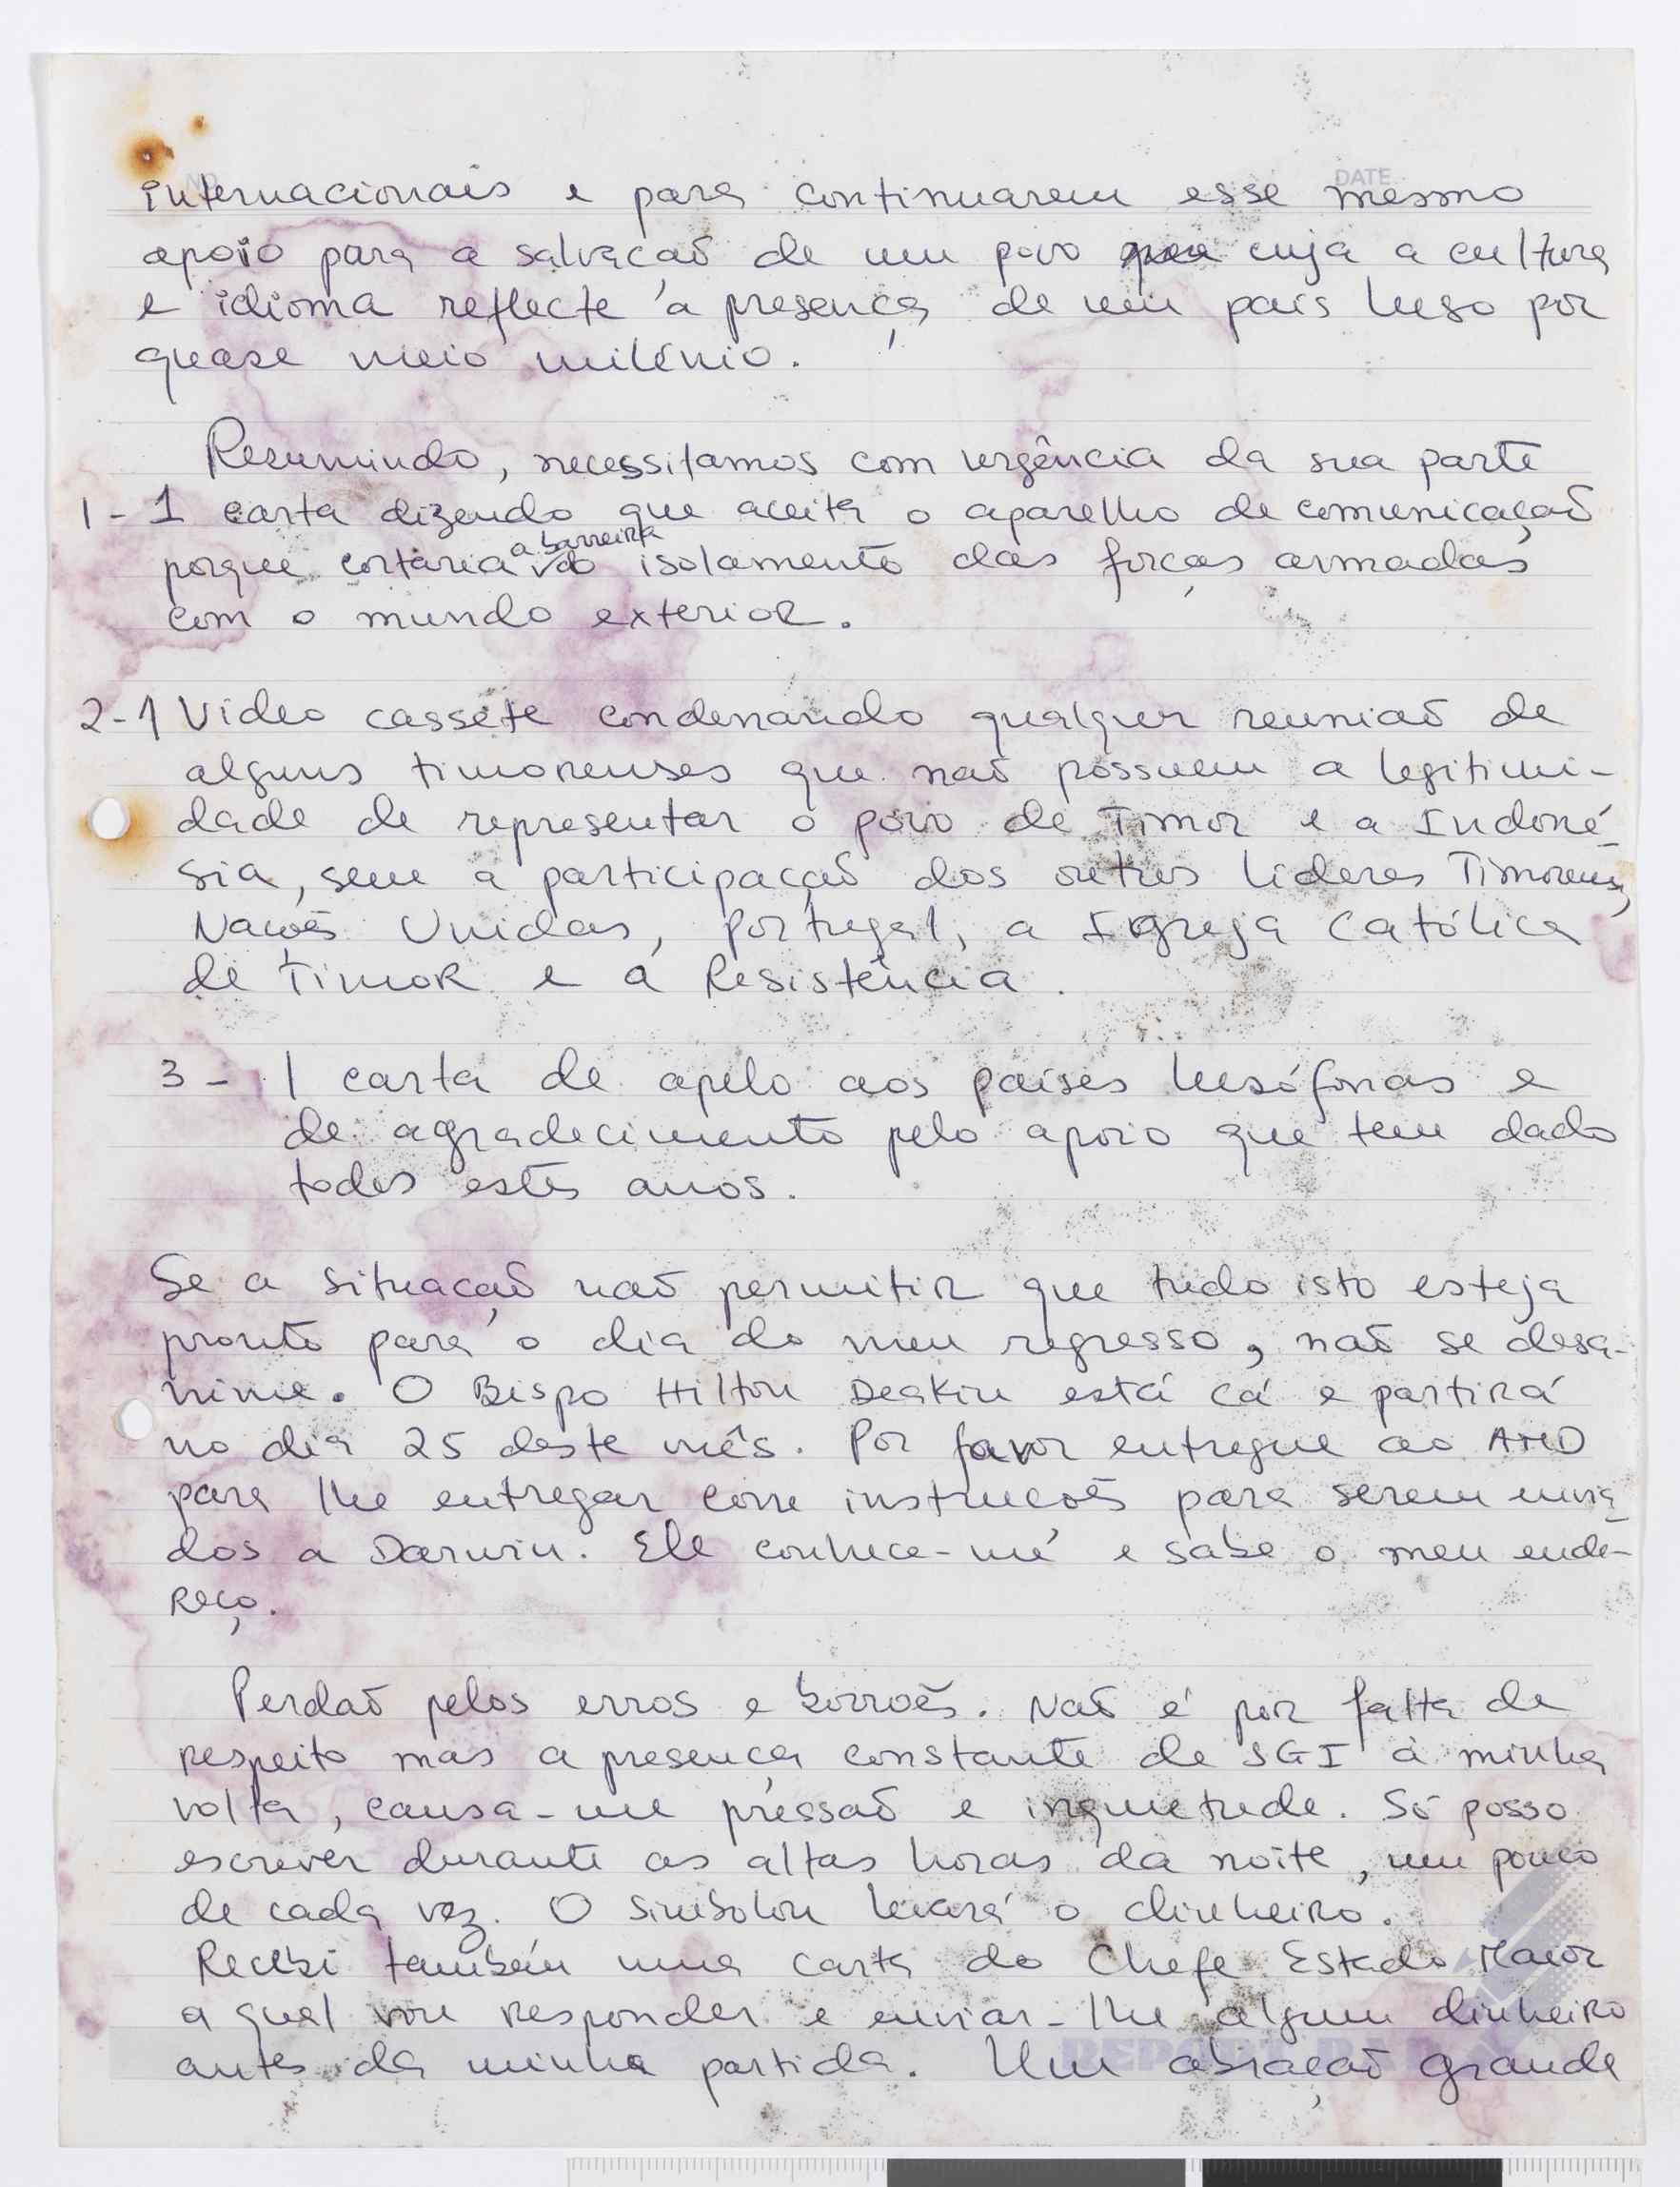 DATE
internacionais e para continuarem esse mesmo
apoio para a salvação de um povo cuja a cultura
e idioma reflecte a presença de um país luso por
quase meio milénio.
Resumindo, necessitamos com urgência da sua parte
1 - 1 carta dizendo que aceita o aparelho de comunicação
a barreira
porque cortaria do isolamento das forças armadas
com o mundo exterior.
2 - 1 Video cassete condenando qualquer reunião de
alguns timorenses que não possuem a legitimi-
dade de representar o povo de Timor e a Indoné-
sia, sem a participação dos outros líderes Timorenses,
Nações Unidas, Portugal, a Igreja Católica
de Timor e a Resistência.
3 - 1 carta de apelo aos países lusófonos e
de agradecimento pelo apoio que tem dado
todos estes anos.
Se a situação não permitir que tudo isto esteja
pronto para o dia do meu regresso, não se desa-
nime. O Bispo Hilton Deakin está cá e partirá
no dia 25 deste mês. Por favor entregue ao AMD
para lhe entregar com instruções para serem envia-
dos a Darwin. Ele conhece-me e sabe o meu ende-
reço.
Perdão pelos erros e borrões. Não é por falta de
respeito mas a presença constante de SGI à minha
volta, causa-me pressão e inquietude. Só posso
escrever durante as altas horas da noite, um pouco
de cada vez. O Simbolon levará o dinheiro.
Recebi também uma carta do Chefe Estado Maior
a qual vou responder e enviar-lhe algum dinheiro
antes da minha partida. Um abração grande